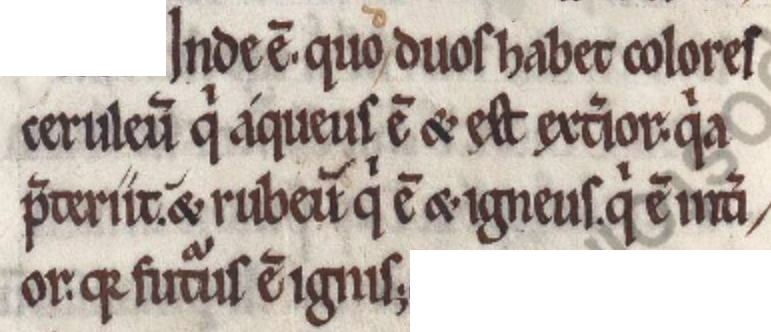 Inde ē. quo duos habet colores
ceruleū qͥ aqueus ē & estext̄ior: qͥa
p̄teriit. & rubeū qͥ ē & igneus. qͥ ē int̄i
or: qꝛ futuͣus ē ignis;